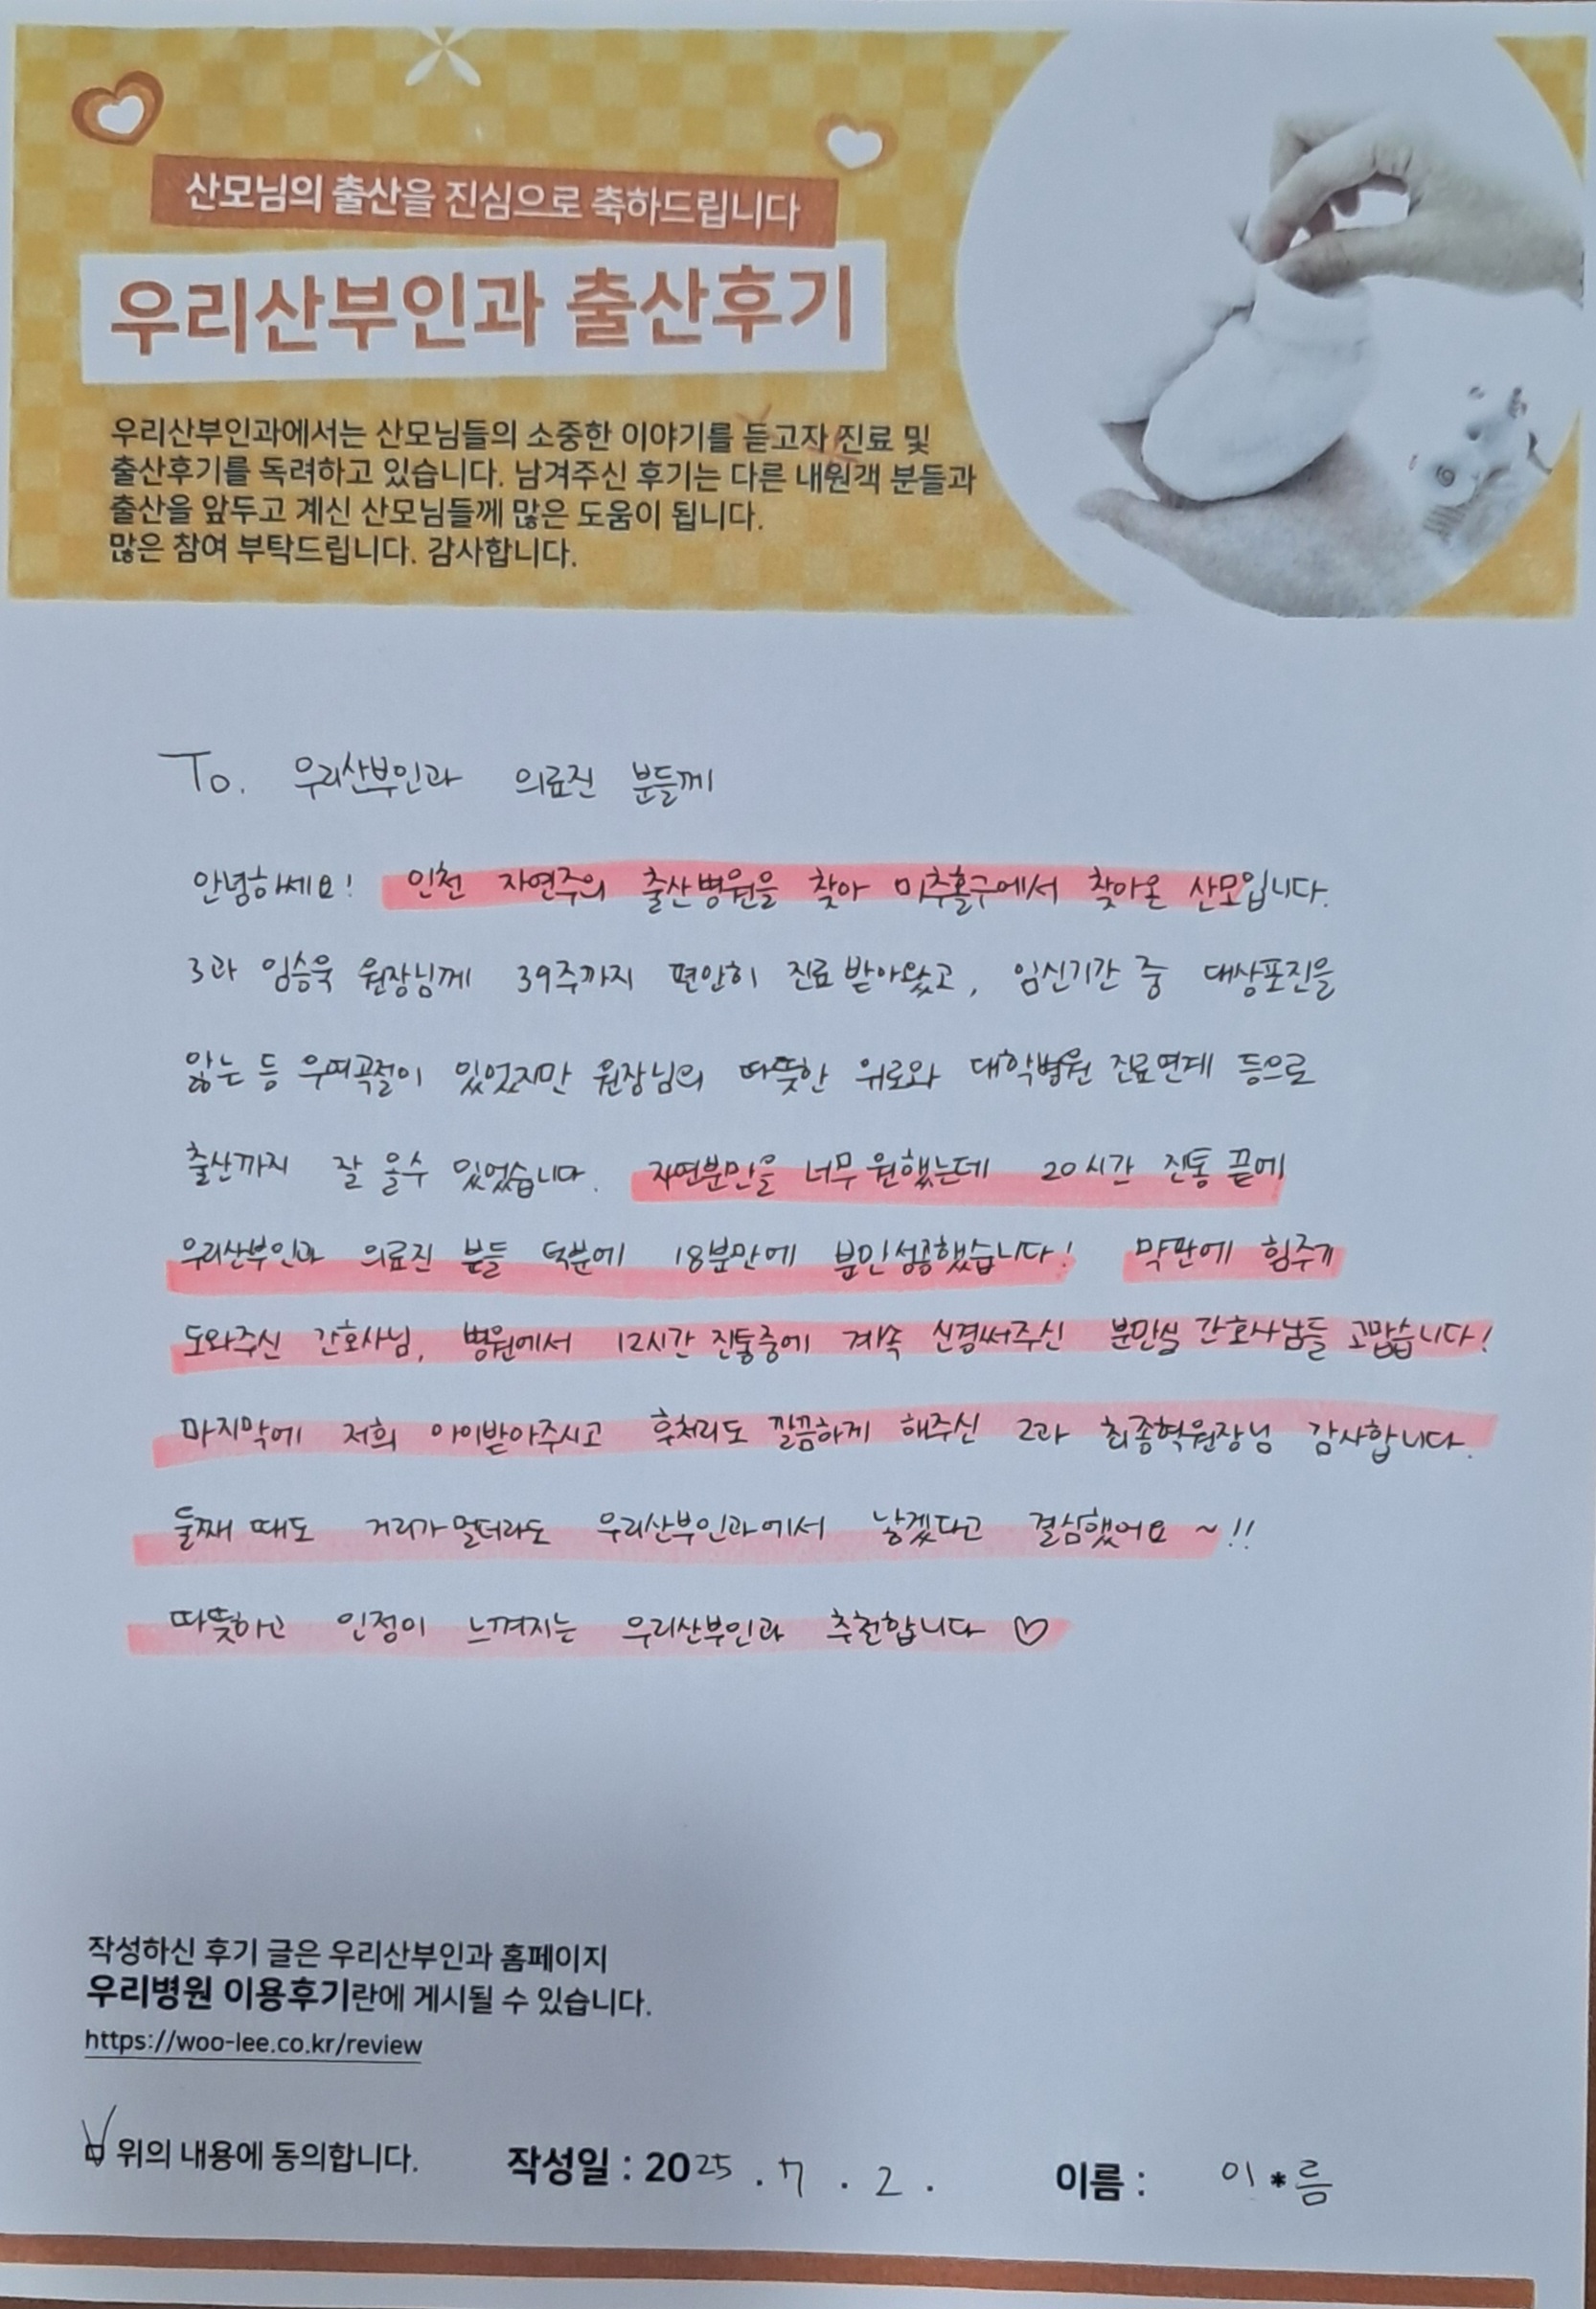 산모님의 출산을 진심으로 축하드립니다
우리산부인과 출산후기
우리산부인과에서는 산모님들의 소중한 이야기를 듣고자 진료 및
출산후기를 독려하고 있습니다. 남겨주신 후기는 다른 내원객 분들과
출산을 앞두고 계신 산모님들께 많은 도움이 됩니다.
많은 참여 부탁드립니다. 감사합니다.
To. 우리산부인과 의료진 분들께
안녕하세요! 인천 자연주의 출산병원을 찾아 미추홀구에서 찾아온 산모입니다.
3과 임승욱 원장님께 39주까지 편안히 진료 받아왔고, 임신기간 중 대상포진을
앓는 등 우여곡절이 있었지만 원장님의 따뜻한 위로와 대학병원 진료연계 등으로
출산까지 잘 올수 있었습니다. 자연분만을 너무 원했는데 20시간 진통 끝에
우리산부인과 의료진 분들 덕분에 18분만에 분만성공했습니다! 막판에 힘주기
도와주신 간호사님, 병원에서 12시간 진통중에 계속 신경써주신 분만실 간호사님들 고맙습니다!
마지막에 저희 아이받아주시고 후처리도 깔끔하게 해주신 2과 최종혁원장님 감사합니다.
둘째 때도 거리가멀더라도 우리산부인과에서 낳겠다고 결심했어요 ~!!
따뜻하고 인정이 느껴지는 우리산부인과 추천합니다 ♡
작성하신 후기 글은 우리산부인과 홈페이지
우리병원 이용후기란에 게시될 수 있습니다.
https://woo-lee.co.kr/review
위의 내용에 동의합니다. 작성일 : 2025 . 7 . 2 . 이름 : 이*름